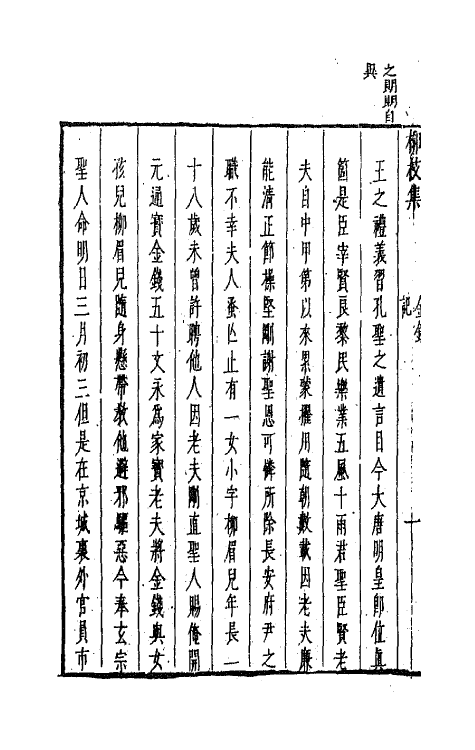 之期期自
與
柳枝集
金錢記
一
王之禮義習孔聖之遺言目今大唐明皇即位真
箇是臣宰賢良黎民樂業五風十雨君聖臣賢老
夫自中甲第以來累蒙擢用隨朝數載因老夫廉
能清正節操堅剛謝聖恩可憐所除長安府尹之
職不幸夫人蚤亡止有一女小字柳眉兒年長一
十八歲未曾許聘他人因老夫剛直聖人賜俺開
元通寳金錢五十文永為家寳老夫將金錢與女
孩兒柳眉兒隨身懸帶教他避邪驅惡今奉玄宗
聖人命明日三月初三但是在京城裏外官員市